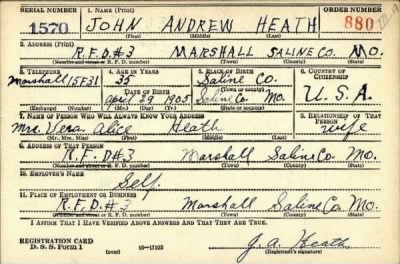 SERIAL NUMBER 1. NAME (Print) ORDER NUMBER
1570 JOHN ANDREW HEATH 880
(First) (Middle) (Last)
2. ADDRESS (Print)
R.F.D. #3 MARSHALL SALINE CO. MO.
(Number and street or R. F. D. number) (Town) (County) (State)
3. TELEPHONE 4. AGE IN YEARS 5. PLACE OF BIRTH 6. COUNTRY OF CITIZENSHIP
Marshall 15F31 35 Saline Co.
DATE OF BIRTH (Town or county)
April 29 1905 Saline Co. Mo. U.S.A.
(Exchange) (Number) (Mo.) (Day) (Yr.) (State or country)
7. NAME OF PERSON WHO WILL ALWAYS KNOW YOUR ADDRESS 8. RELATIONSHIP OF THAT PERSON
Mrs. Vera Alice Heath wife
(Mr., Mrs., Miss) (First) (Middle) (Last)
9. ADDRESS OF THAT PERSON
R.F.D. #3 Marshall Saline Co. Mo.
(Number and street or R. F. D. number) (Town) (County) (State)
10. EMPLOYER'S NAME
Self.
11. PLACE OF EMPLOYMENT OR BUSINESS
R.F.D. #3 Marshall Saline Co. Mo.
(Number and street or R. F. D. number) (Town) (County) (State)
I AFFIRM THAT I HAVE VERIFIED ABOVE ANSWERS AND THAT THEY ARE TRUE.
REGISTRATION CARD
D. S. S. Form 1 (over) 16—17105 J. A. Heath
(Registrant's signature)